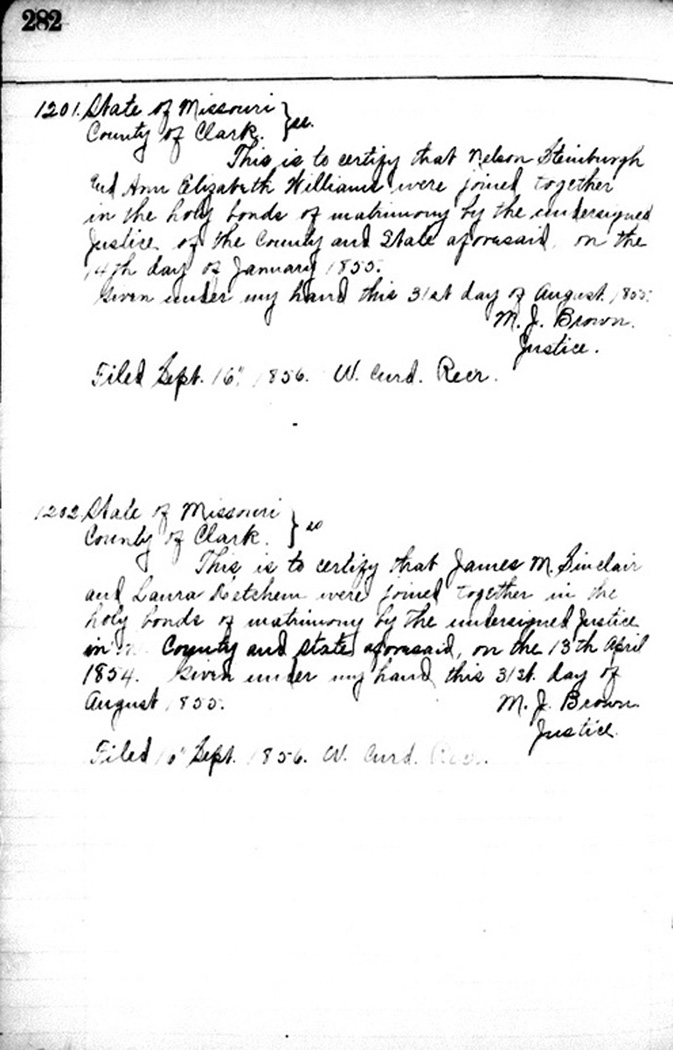 282
1201. State of Missouri } ss.
County of Clark.
This is to certify that Nelson Steinburgh
and Ann Elizabeth Williams were joined together
in the holy bonds of matrimony by the undersigned
Justice of the County and State aforesaid, on the
14th day of January 1855.
Given under my hand this 31st day of August 1855.
M. J. Brown.
Justice.
Filed Sept. 16" 1856. W. Curd. Recr.
1202. State of Missouri } ss
County of Clark.
This is to certify that James M. Sinclair
and Laura Ketchem were joined together in the
holy bonds of matrimony by the undersigned Justice
in County and State aforesaid, on the 13th April
1854. Given under my hand this 31st day of
August 1855.
M. J. Brown.
Justice.
Filed 16" Sept. 1856. W. Curd. Recr.